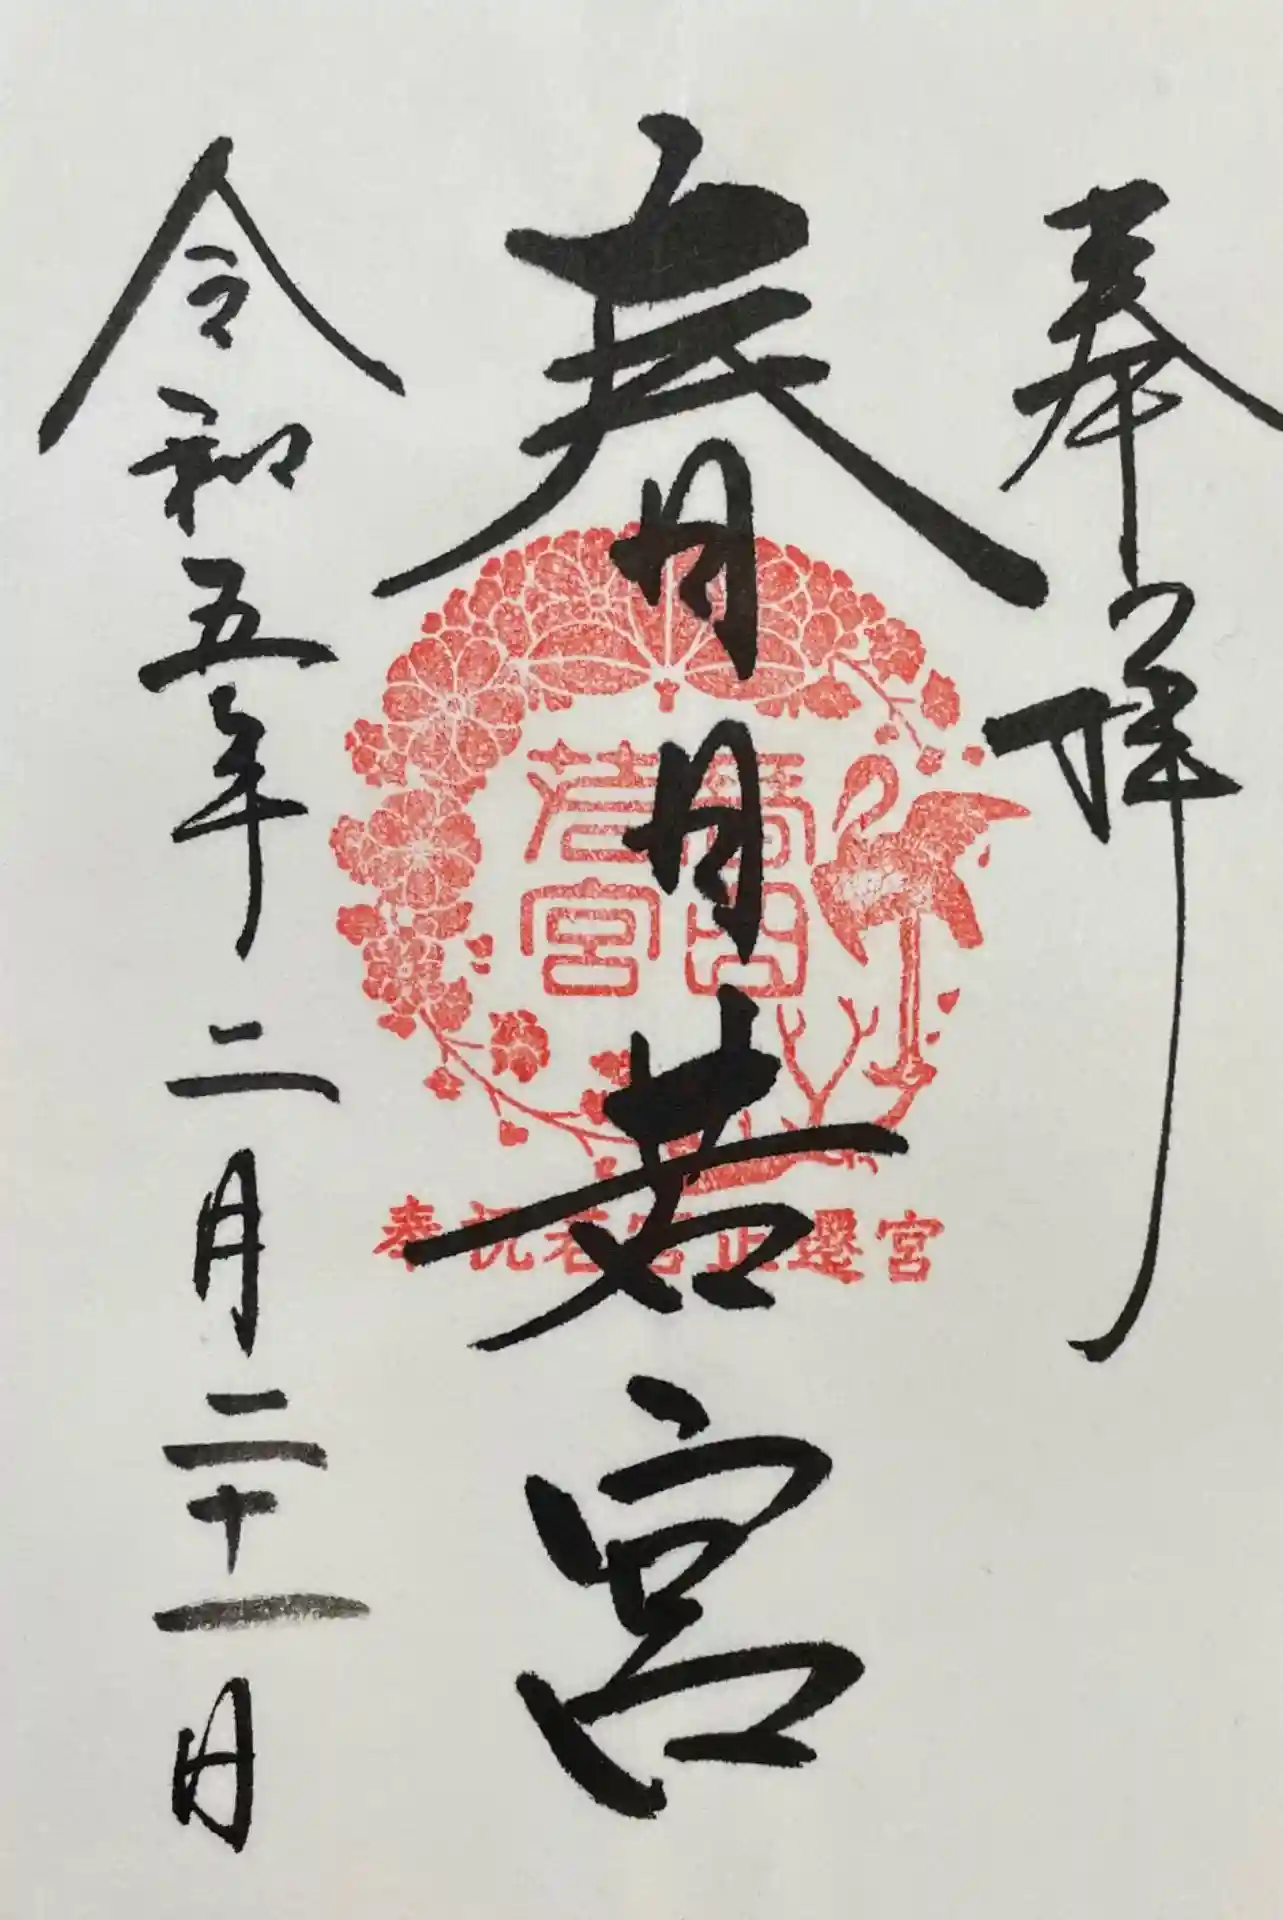 奉拝
春日若宮
若宮
奉祝若宮正遷宮
令和五年二月二十一日